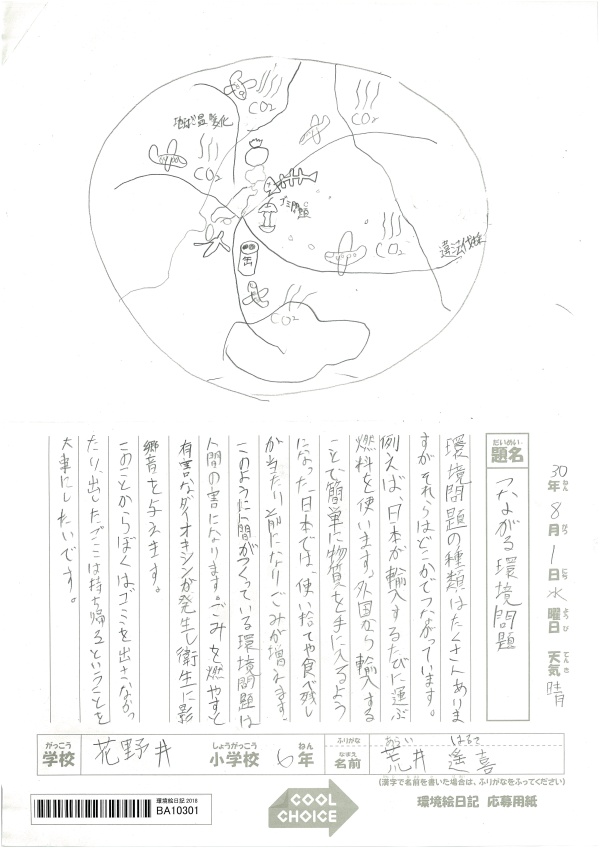 地球温暖化
CO2
CO2
CO2
CO2
CO2
ゴミ問題
違法伐採
缶
30年8月1日水曜日 天気晴
ねん がつ にち ようび てんき
だいめい
題名
つながる環境問題
環境問題の種類はたくさんありま
すがそれらはどこかでつながっています。
例えば、日本が輸入するたびに運ぶ
燃料を使います。外国から輸入する
ことで簡単に物質を手に入るよう
になった日本では、使い捨てや食べ残し
が当たり前になりごみが増えます。
このように人間がつくっている環境問題は
人間の害になります。ごみを燃やすと
有害なダイオキシンが発生し衛生に影
響を与えます。
このことからぼくはゴミを出さなかっ
たり、出したゴミは持ち帰るということを
大事にしたいです。
がっこう
学校
花野井
しょうがっこう
小学校
6
ねん
年
ふりがな
あらい はるき
なまえ
名前
荒井 遥喜
(漢字で名前を書いた場合は、ふりがなをふってください)
環境絵日記2018
BA10301
COOL
CHOICE
環境絵日記 応募用紙